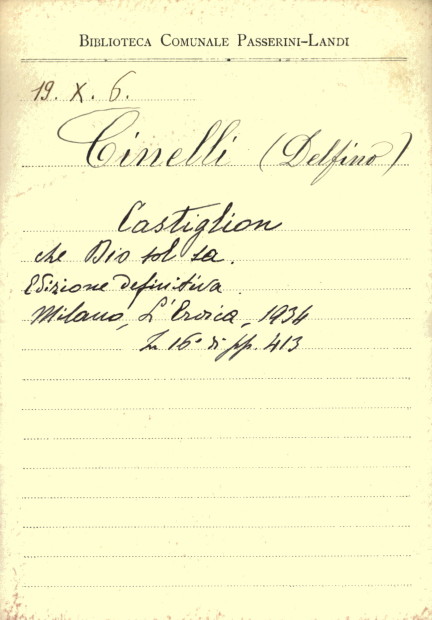 BIBLIOTECA COMUNALE PASSERINI-LANDI
19. X. 6.
Cinelli (Delfino)
Castiglion
che Dio sol sa.
Edizione definitiva
Milano, L'Eroica, 1934
In 16° di pp. 413